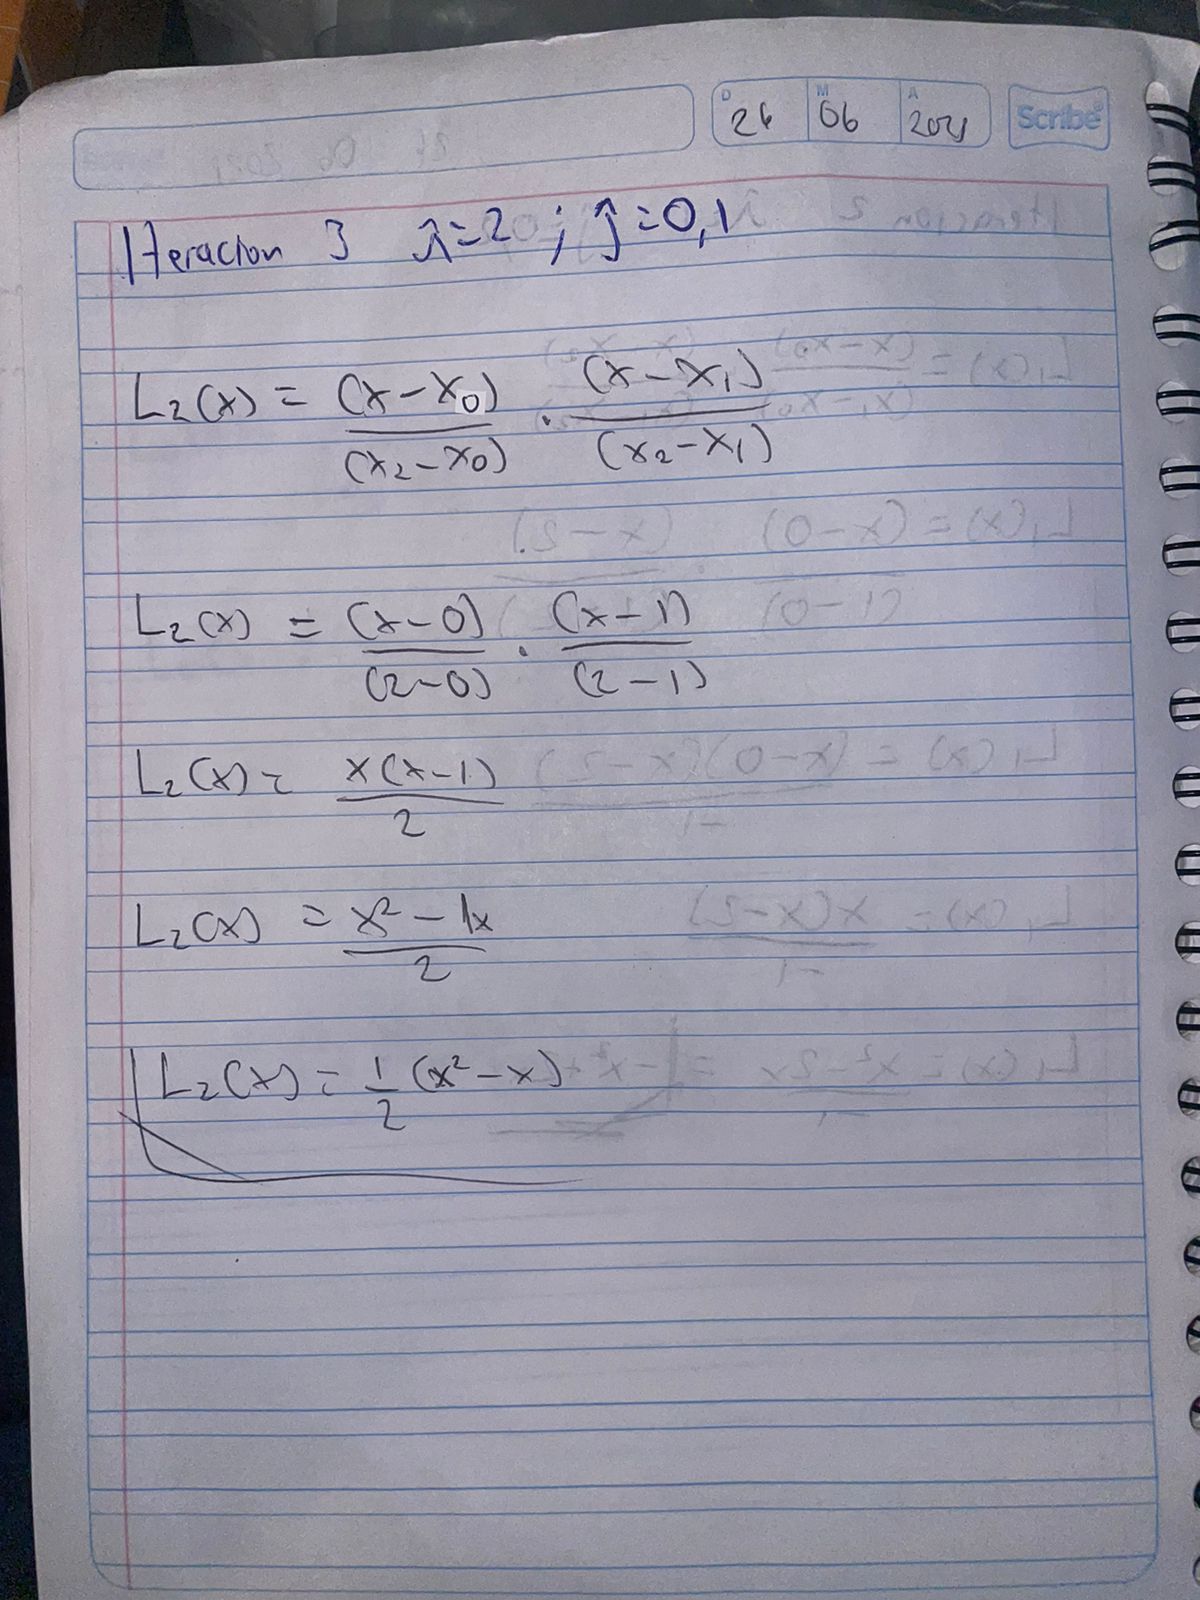 D 26 M 06 A 2021 Scribe
Iteracion 3 i=2 ; j=0,1
L₂(x) = (x-x₀)/(x₂-x₀) · (x-x₁)/(x₂-x₁)
L₂(x) = (x-0)/(2-0) · (x-1)/(2-1)
L₂(x) = x(x-1)/2
L₂(x) = x²-1x/2
L₂(x) = 1/2 (x²-x)